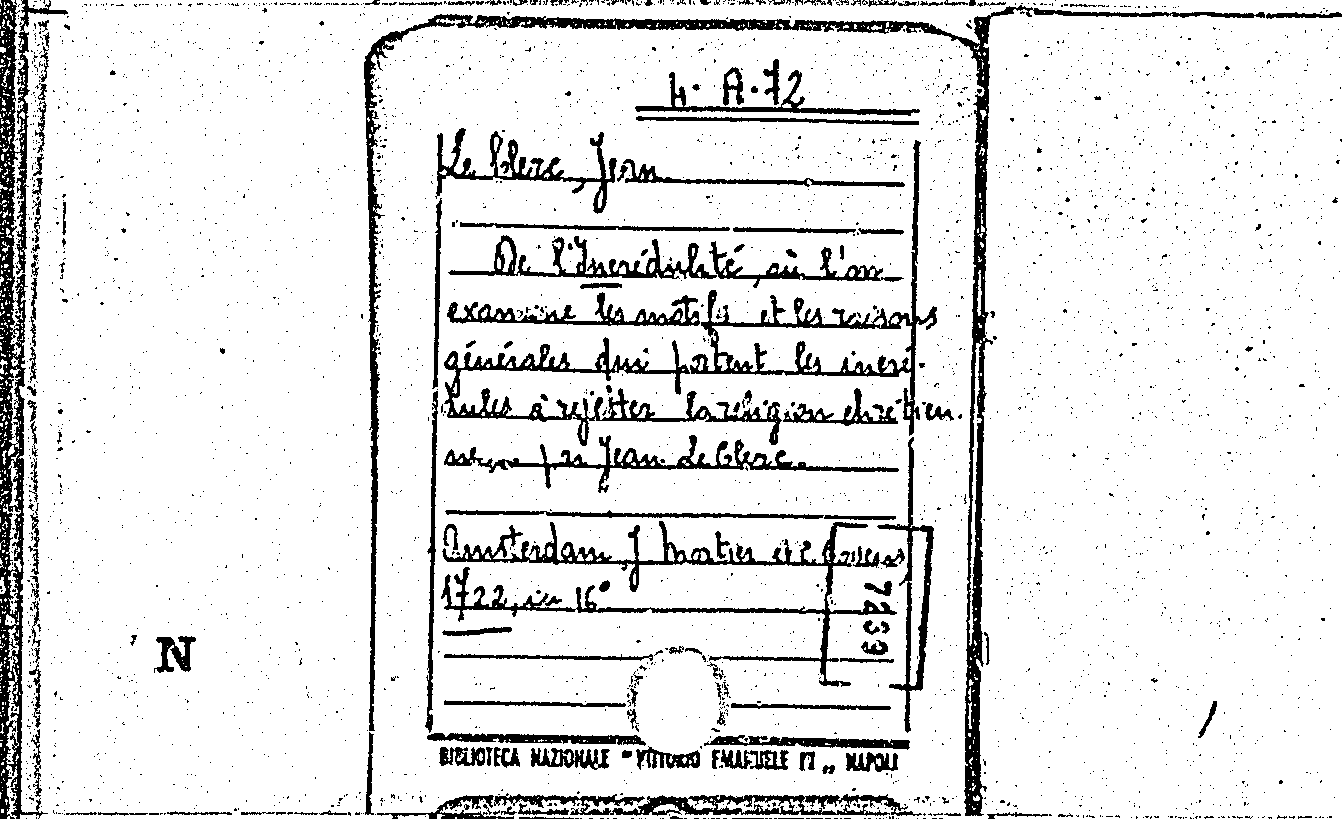 4. A. 72
Le Clerc, Jean
De l'Incrédulité, où l'on
examine les motifs et les raisons
générales qui portent les incré-
dules à rejetter la religion chrétien-
par Jean Le Clerc.
Amsterdam, J Mortier et
1722, in 16°
7239
N
BIBLIOTECA NAZIONALE "VITTORIO EMANUELE III „ NAPOLI